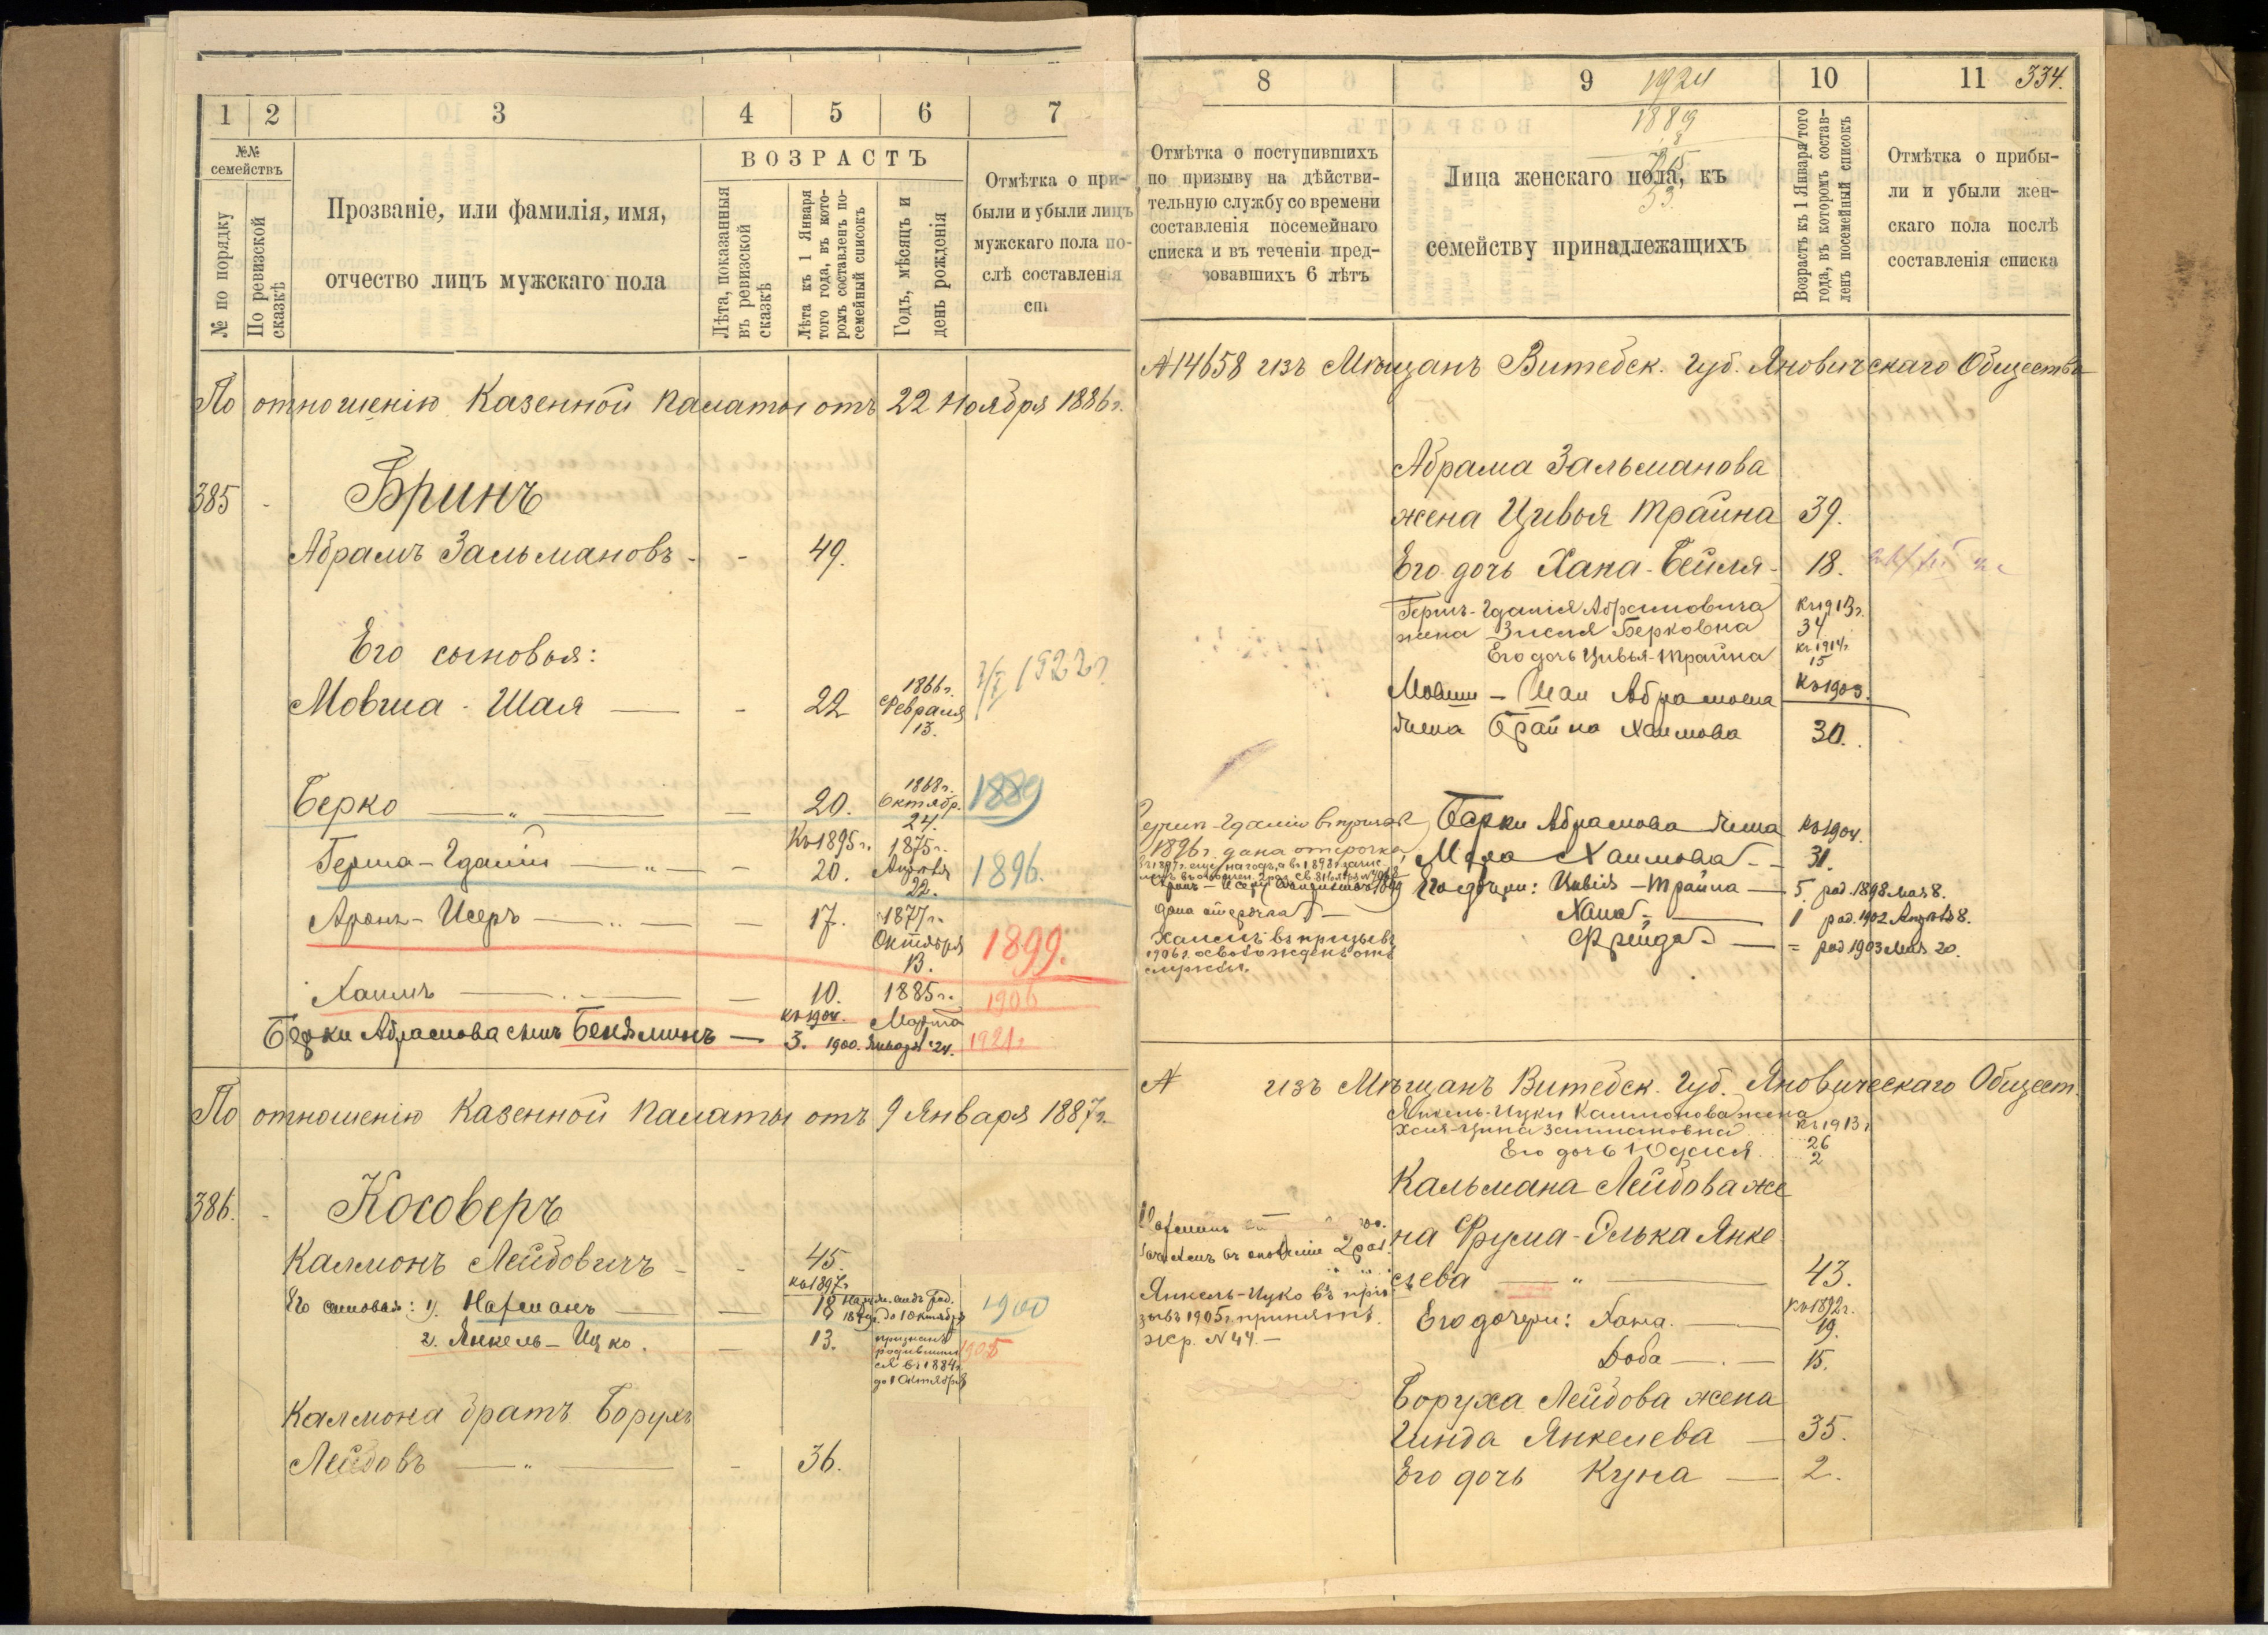 1 2 3 4 5 6 7
№№ семействъ
№ по порядку
По ревизской сказкѣ
Прозваніе, или фамилія, имя,
отчество лицъ мужскаго пола
ВОЗРАСТЪ
Лѣта, показанныя
въ ревизской
сказкѣ
Лѣта къ 1 Января
того года, въ кото-
ромъ составленъ по-
семейный списокъ
Годъ, мѣсяцъ и
день рожденія
Отмѣтка о при-
были и убыли лицъ
мужскаго пола по-
слѣ составленія
По отношенію Казенной Палаты отъ 22 Ноября 1886 г.
385 - Бринъ
Абрамъ Зальмановъ - - 49.
Его сыновья:
Мовша - Шая — - 22 1866 г. Февраля 13. 1922 г.
Берко — „ — — 20. 1868 г. Октябр. 24. 1889
Герша - Гдалія — „ — — Къ 1895 г. 20. 1875 г. Апрѣля 22. 1896.
Аронъ - Исеръ — „ — — 17. 1877 г. Октября 13. 1899.
Хаимъ — . — — 10. 1885 г. Марта 1906
Берки Абрамова сынъ Беньяминъ — къ 1904. 3. 1900. Января 24. 1921 г.
По отношенію Казенной Палаты отъ 9 Января 1887 г.
386. - Косоверъ
Калмонъ Лейбовичъ - - 45.
Его сыновья: 1) Нафманъ — — къ 1897 г. 18 1900
2. Янкель - Ицко. — 13. признанъ
родившим
ся въ 1884 г.
до 1 Октября 1905
Калмона братъ Борухъ
Лейбовъ — „ — - 36.
8 9 10 11
1924
1889
334.
Отмѣтка о поступившихъ
по призыву на дѣйстви-
тельную службу со времени
составленія посемейнаго
списка и въ теченіи пред-
зовавшихъ 6 лѣтъ
Лица женскаго пола, къ
семейству принадлежащихъ
Возрастъ къ 1 Января того
года, въ которомъ состав-
ленъ посемейный списокъ
Отмѣтка о прибы-
ли и убыли жен-
скаго пола послѣ
составленія списка
№ 14658 изъ Мѣщанъ Витебск. Губ. Яновичскаго Общества
Абрама Зальманова
жена Цивья Трайна 39.
Его дочь Хана - Бейля - 18.
Герша - Гдалія Абрамовича къ 1913 г.
жена Зисля Берковна 34
Его дочь Цивья - Трайна къ 1914 г. 15
Мовши - Шаи Абрамова къ 1903.
жена Брайна Хаимова 30.
1896 г. дана отсрочка
дана отсрочка
Хаимъ въ призывъ
1906 г. освобожденъ отъ
службы.
Берки Абрамова жена къ 1904.
Мера Хаимова - - 31.
Его дочери: Цивія - Трайна — 5. род. 1898 Мая 8.
Хана - — 1 род. 1902 Апрѣля 8.
Фрейда - — = род 1903 Мая 20.
№ изъ Мѣщанъ Витебск. Губ. Яновическаго Общест.
Янкель - Ицки Калмонова жена къ 1913 г.
26
Его дочь 2
Кальмана Лейбова же
на Фрума - Элька Янке
лева — „ — 43.
Янкель - Ицко въ при
зывъ 1905 г. принятъ.
жр. № 44. —
Его дочери: Хана. — къ 1892 г. 19.
Доба — . — 15.
Боруха Лейбова жена
Гинда Янкелева — 35.
Его дочь Куна — 2.